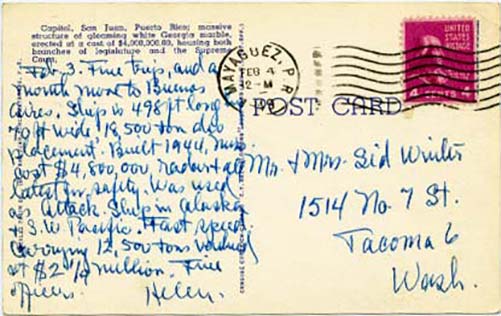 Capitol, San Juan, Puerto Rico; massive
structure of gleaming white Georgia marble,
erected at a cost of $4,000,000.00, housing both
branches of legislature and the Supreme
Court.
Feb. 3. Fine trip, and a
month more to Buenos
Aires. Ship is 498 ft long
70 ft wide 18,500 ton dis
placement. Built 1944,
cost $4,800,000, radar & all
latest for safety. Was used
as Attack Ship in Alaska
& S.W. Pacific. Fast speed.
Carrying 12,500 tons valued
at $2 1/2 million. Fine
officers. Helen.
MAYAGUEZ, P.R.
FEB 4
12-M
UNITED
STATES
POSTAGE
4 CENTS 4
POST CARD
Mr. & Mrs. Sid Winter
1514 No. 7 St.
Tacoma 6
Wash.